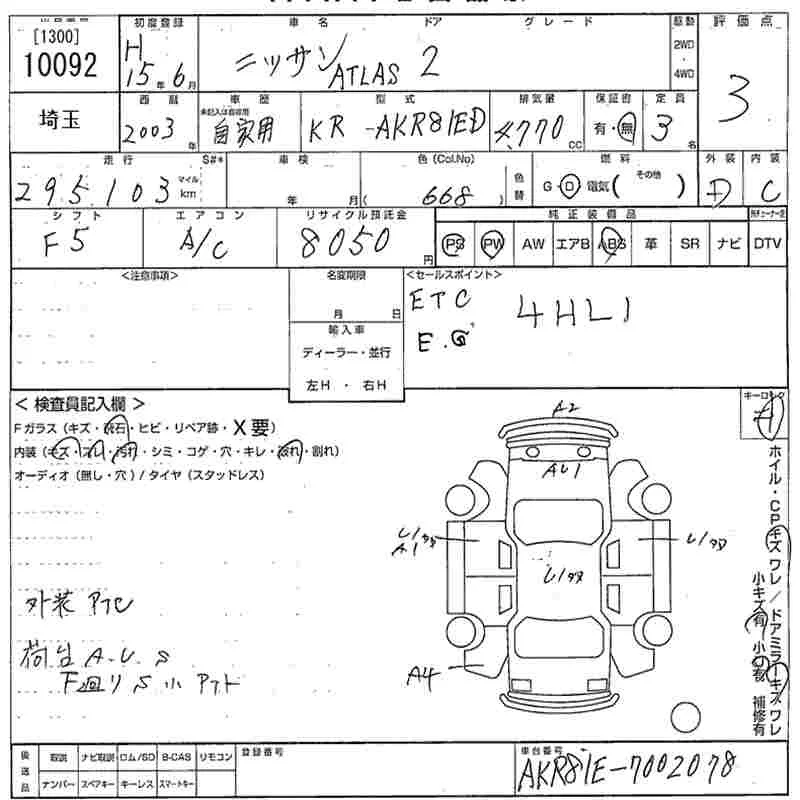 初度登録 車名 ドア グレード 駆動 評価点
[1300]
10092
H
15年6月
ニッサン ATLAS 2
2WD
・
4WD
3
埼玉
西暦 車歴 型式 排気量 保証書 定員
未記入は自家用
2003年 自家用 KR-AKR81ED 4,770CC 有・無 3名
走行 S#* 車検 色(Col.No) 燃料 外装 内装
その他
295103 マイル km 年 月( 668 ) 色替 G・D・電気( ) D C
シフト エアコン リサイクル預託金 純正装備品
F5 A/C 8050円 PS PW AW エアB ABS 革 SR ナビ DTV
<注意事項> 名変期限 <セールスポイント>
月 日
ETC 4HL1
E.G'
輸入車
ディーラー・並行
左H・右H
<検査員記入欄>
Fガラス(キズ・飛石・ヒビ・リペア跡・X要)
内装(キズ・スレ・汚れ・シミ・コゲ・穴・キレ・割れ)
オーディオ(無し・穴)/タイヤ(スタッドレス)
キーロック
A2
AU1
A1
A4
外装
荷台 A.U.S
下廻りS小
ホイル・CPキズワレ/ドアミラーキズワレ
小キズ有 補修有
後送品 取説 ナビ取説 ロム/SD B-CAS リモコン
ナンバー スペアキー キーレス スマートキー
登録番号
車台番号
AKR81E-7002078